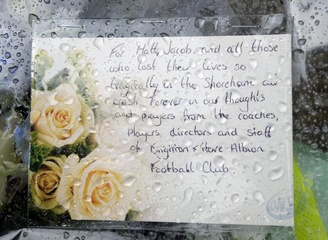 For Matty, Jacob and all those
who lost their lives so
tragically in the Shoreham air
crash. Forever in our thoughts
and prayers from the coaches,
Players, directors and staff
of Brighton & Hove Albion
Football Club.